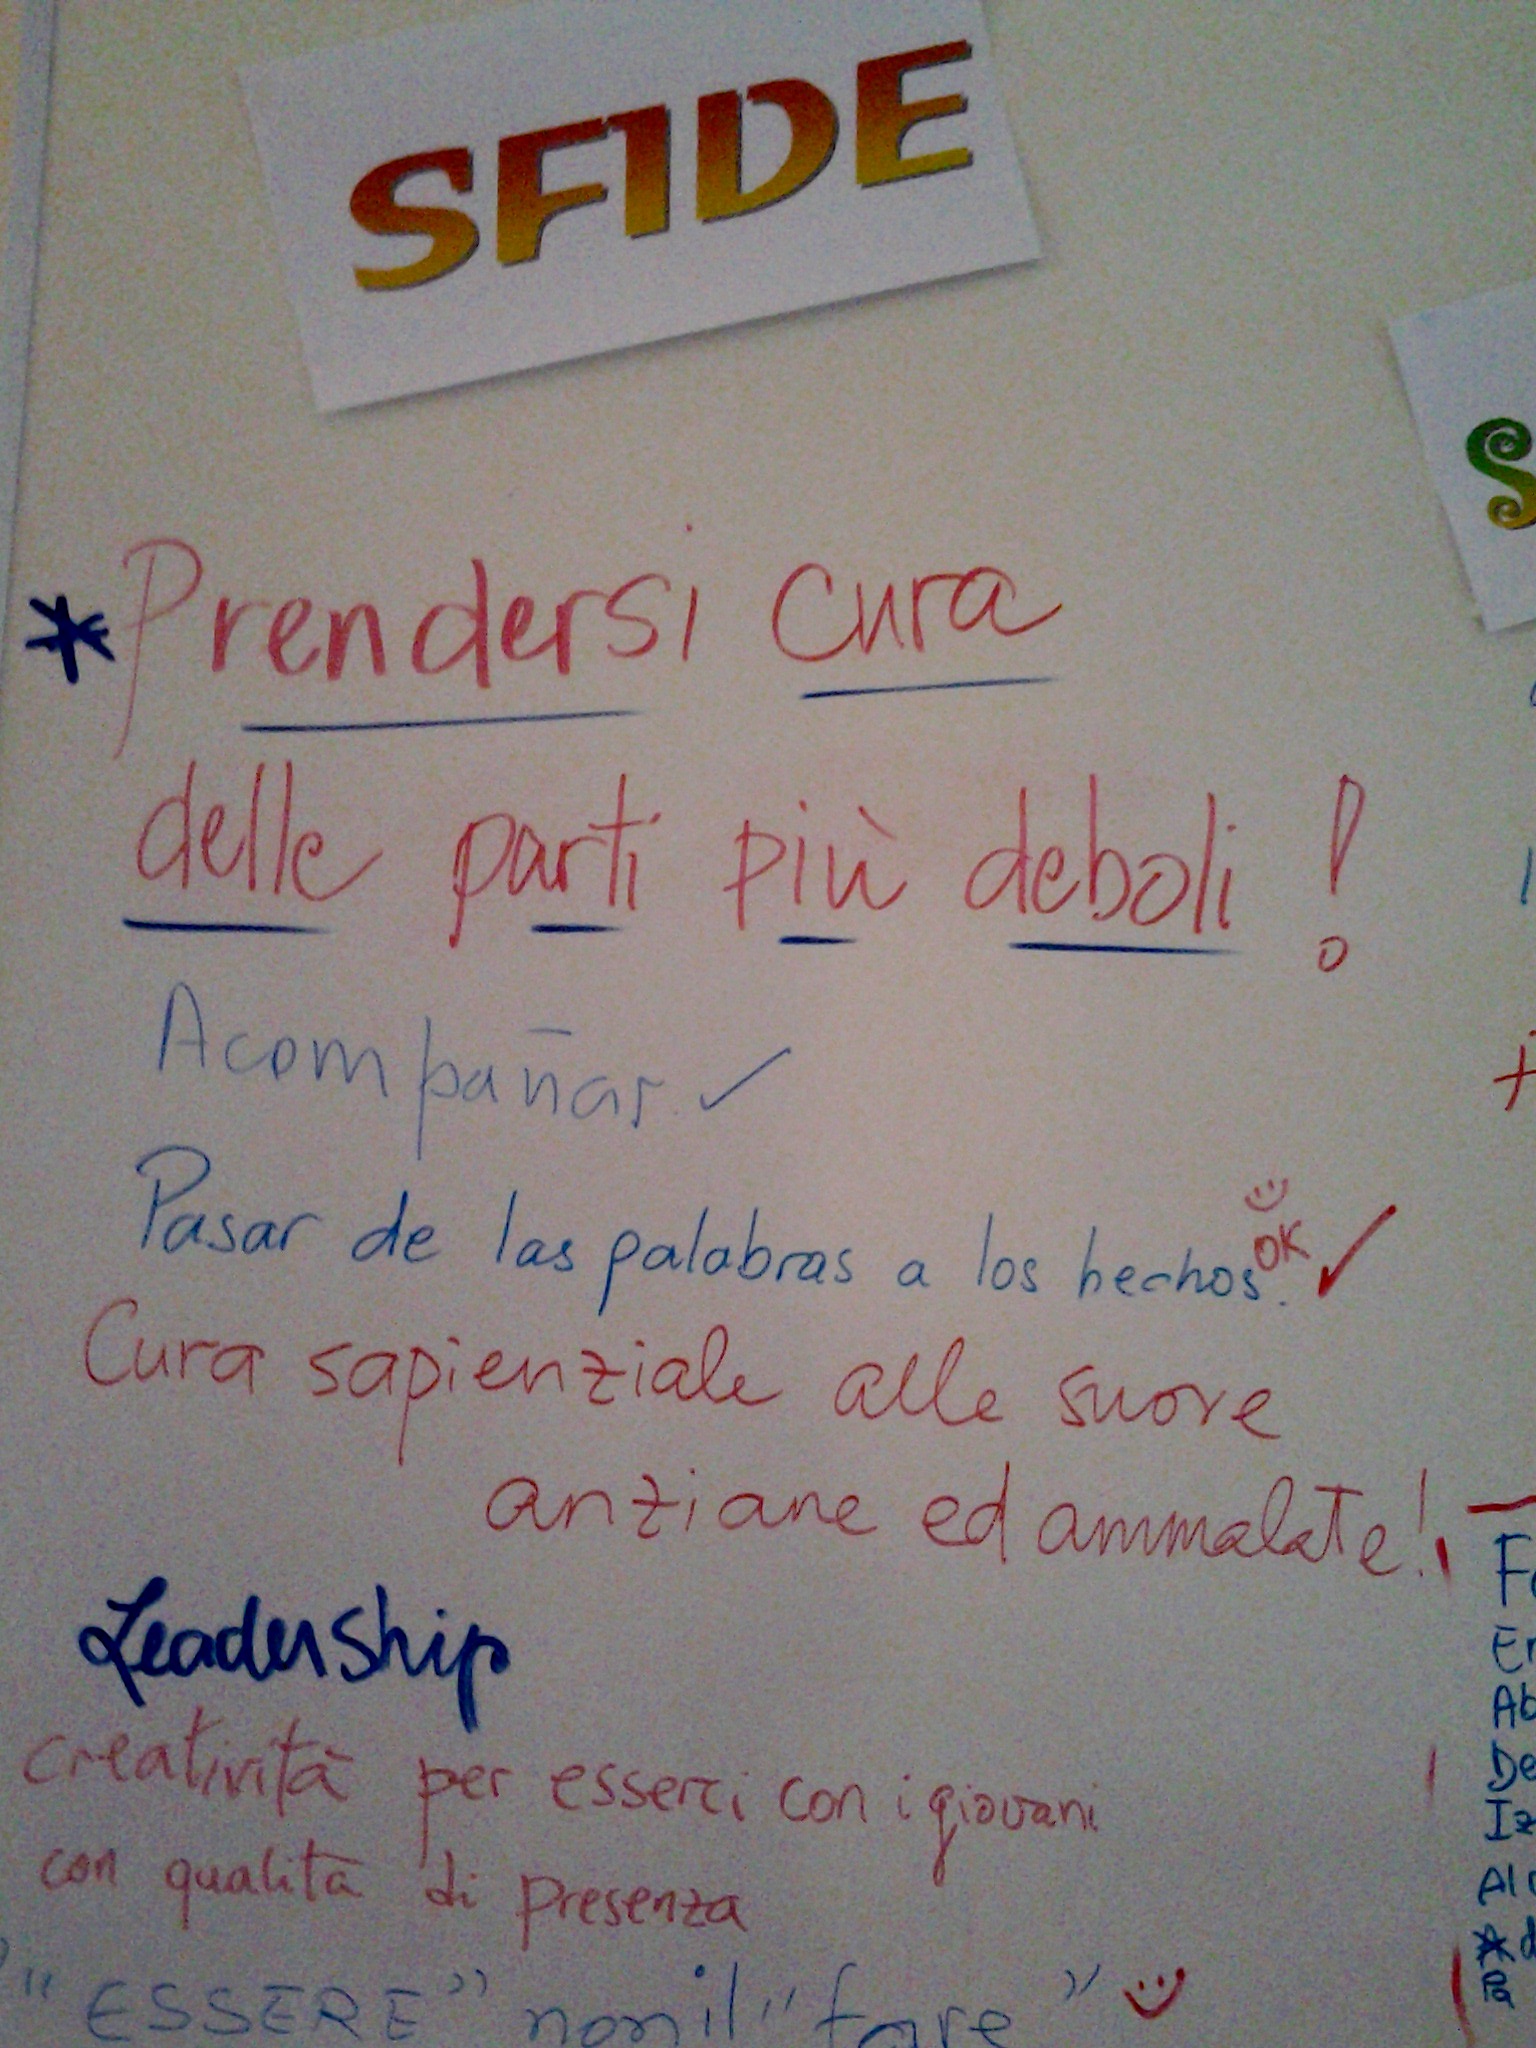 SFIDE
S
*Prendersi cura
delle parti più deboli!
Acompañar ✓
Pasar de las palabras a los hechos. OK ✓
Cura sapienziale alle suore
anziane ed ammalate!
Leadership
creatività per esserci con i giovani
con qualità di presenza
"ESSERE" non il "fare"
En
Ab
De
Iz